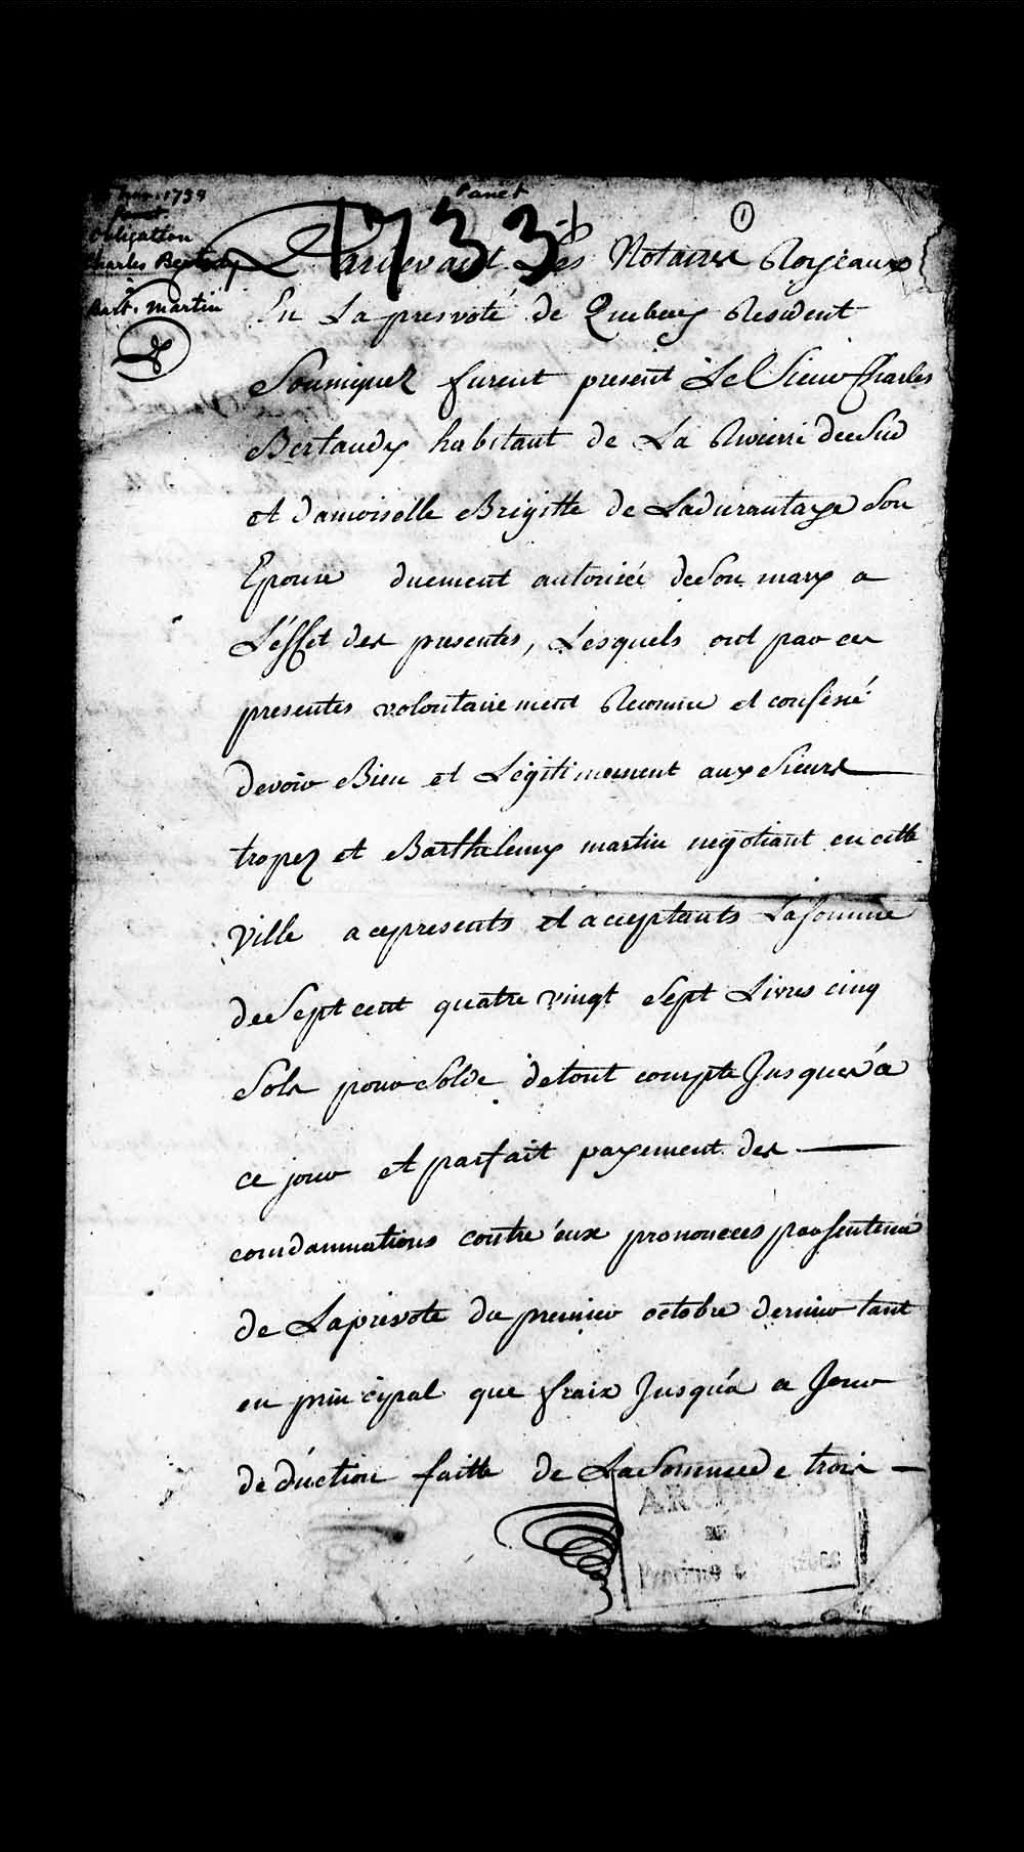 1733-b
Panet
1
1759
Panet
Obligation
Charles Bertaudy
à
Bart. Martin
Pardevant Les Notaires Royeaux
En La presvoté de Quebecq Resident
Soussignez furent present Le Sieur Charles
Bertaudy habitant de La Rivierre dee Sud
et damoiselle Brigitte de Ladurantaye Son
Epouse duement autorisée de Son mary a
L'éffet des presentes, Lesquels ont par ces
presentes volontairement Reconnu et confessé
devoir Bien et Légitimement aux Sieurs
tropez et Barthelemy martin negotiant en cette
Ville a ce presents et acceptants La somme
dee Sept cent quatre vingt Sept Livres cinq
Sols pour Solde de tout compte Jusques'a
ce jour et parfait payement des
comdamnations contre éux prononcées par sentence
de La prevote du premier octobre dernier tant
en principal que fraix Jusqu'a ce Jour
déduction faitte de La Somme de trois
ARCHIVES
Province de Québec